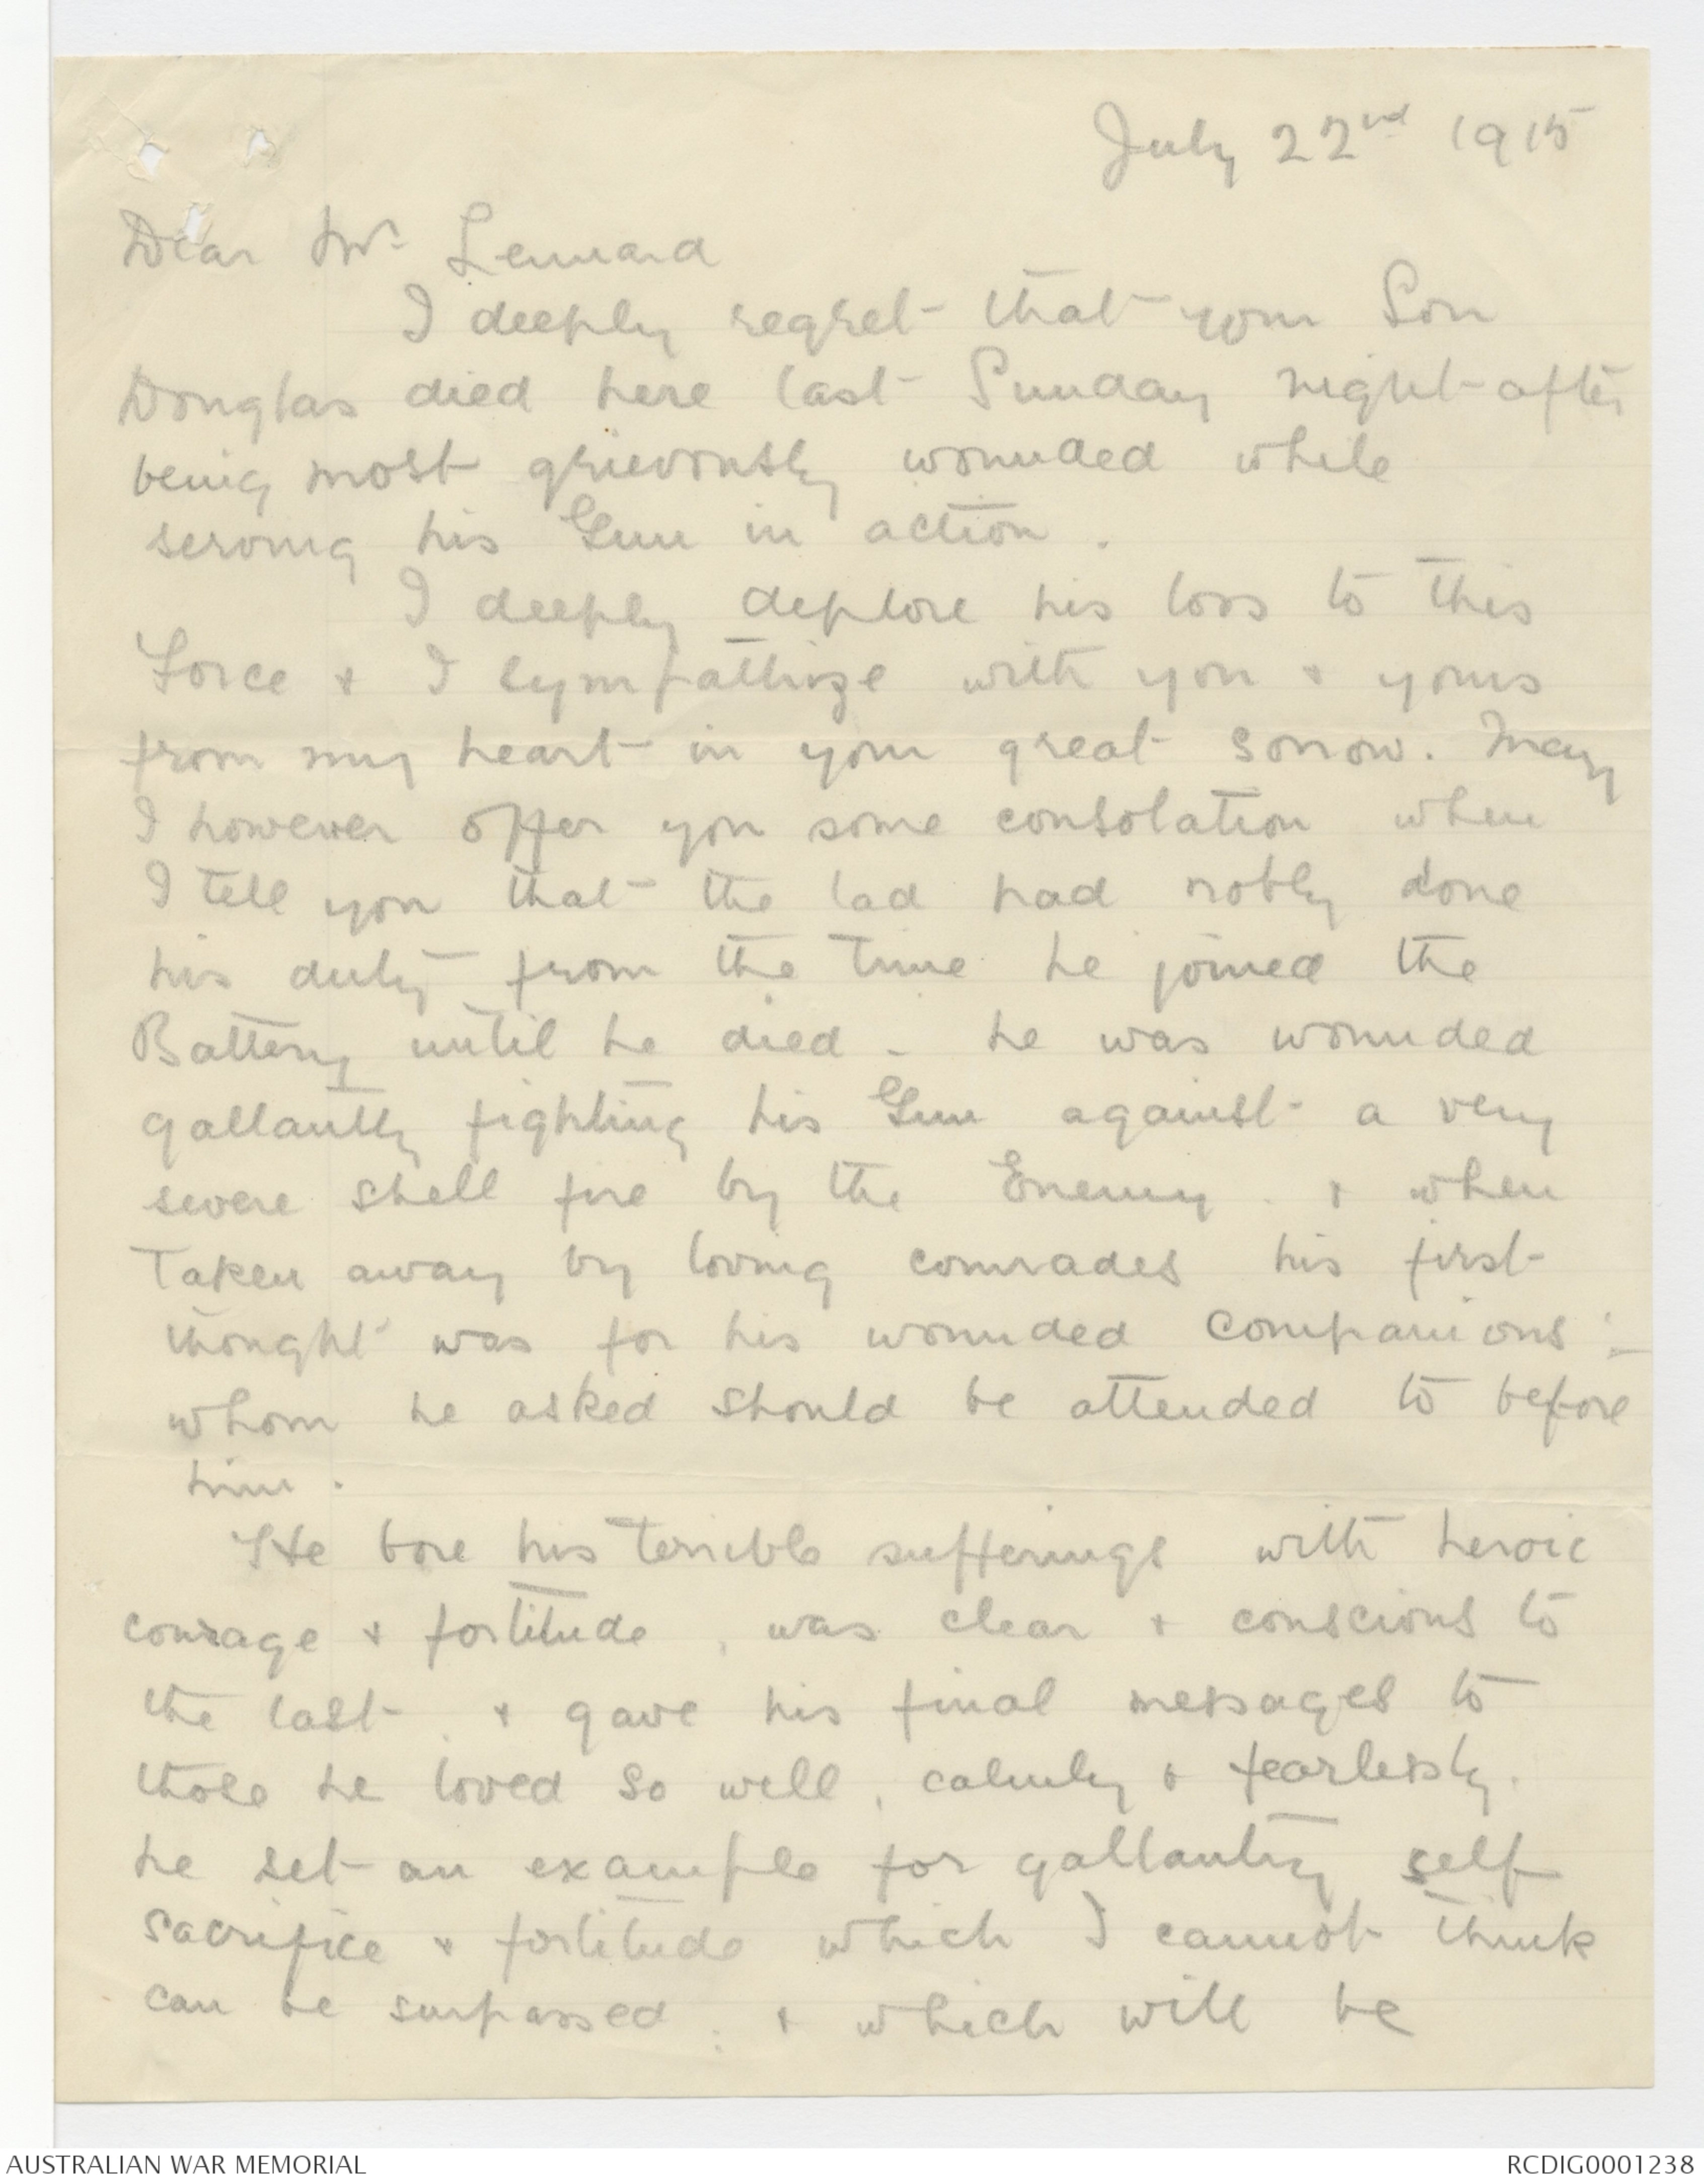 July 22nd 1915
Dear Mr Lennard
I deeply regret that your Son
Douglas died here last Sunday night after
being most grievously wounded while
serving his Gun in action.
I deeply deplore his loss to this
Force & I sympathize with you & yours
from my heart in your great sorrow. May
I however offer you some consolation when
I tell you that the lad had nobly done
his duty from the time he joined the
Battery until he died - he was wounded
gallantly fighting his Gun against a very
severe shell fire by the Enemy. & when
Taken away by loving comrades his first
thought was for his wounded companions :-
whom he asked should be attended to before
him.
He bore his terrible sufferings with heroic
courage & fortitude, was clear & conscious to
the last, & gave his final messages to
those he loved so well, calmly & fearlessly.
he set an example for gallantry self
sacrifice & fortitude which I cannot think
can be surpassed; & which will be
AUSTRALIAN WAR MEMORIAL
RCDIG0001238